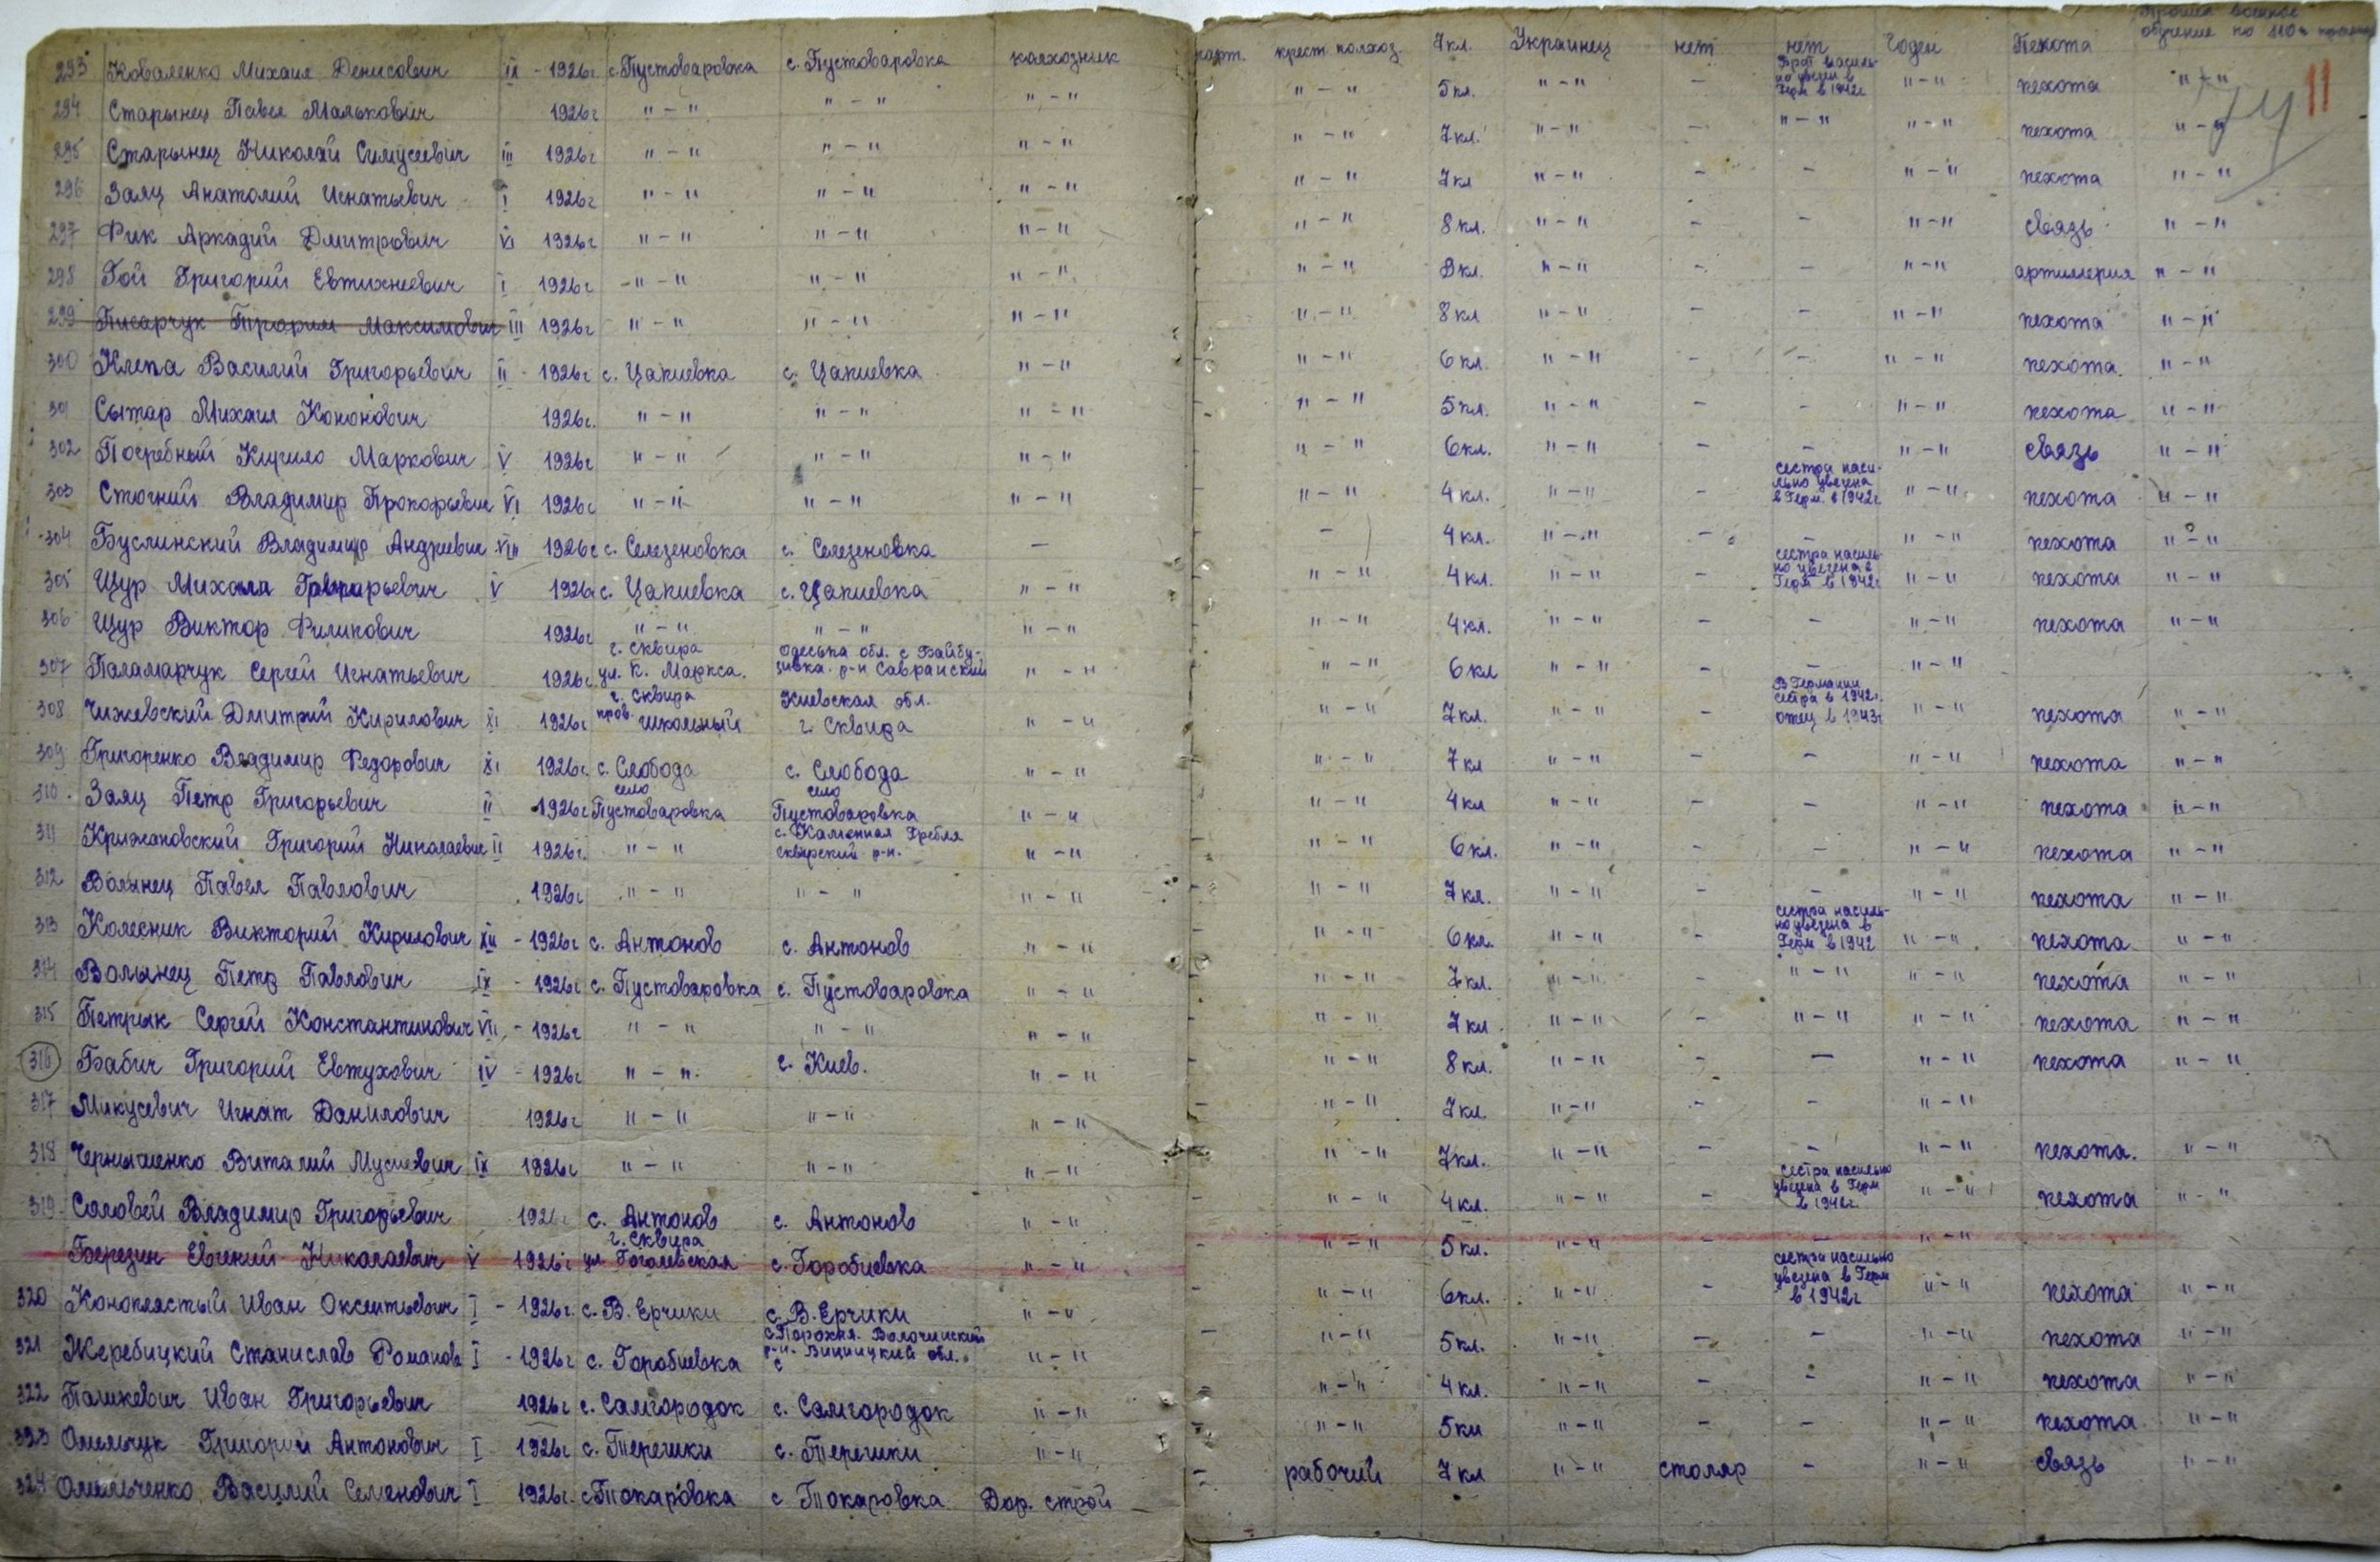 293 Коваленко Михаил Денисович IX - 1926г. с. Пустоваровка с. Пустоваровка колхозник парт. крест. колхоз. 7кл. Украинец нет нет Годен Пехота Прошел военное обучение по 110ч
294 Старынец Павел Малькович 1926г " - " " - " " - " " - " 5кл. " - " - Брат насильно увезен в Герм в 1942г " - " пехота " - "
295 Старынец Николай III 1926г " - " " - " " - " " - " 7кл. " - " - " - " " - " пехота " - "
296 Заяц Анатолий Игнатьевич I 1926г " - " " - " " - " " - " 7кл " - " - - " - " пехота " - "
297 Фик Аркадий Дмитрович VI 1926г " - " " - " " - " " - " 8кл. " - " - - " - " связь " - "
298 Гой Григорий Евтихиевич I 1926г - " - " " - " " - " " - " 8кл. " - " - - " - " артиллерия " - "
299 Писарчук Максимович III 1926г " - " " - " " - " " - " 8кл " - " - - " - " пехота " - "
300 Клепа Василий Григорьевич II - 1926г с. Цапиевка с. Цапиевка " - " - " - " 6кл. " - " - - " - " пехота. " - "
301 Сытар Михаил Кононович 1926г. " - " " - " " - " - " - " 5кл. " - " - - " - " пехота " - "
302 Погребный Кирило Маркович V 1926г " - " " - " " - " - " - " 6кл. " - " - - " - " связь " - "
303 Стогний Владимир Прокофьевич VI 1926г " - " " - " " - " " - " 4кл. " - " - сестра насильно увезена в Герм. в 1942г " - " пехота " - "
304 Буслинский Владимир Андреевич VIII 1926г с. Селезеновка с. Селезеновка - - 4кл. " - " - - " - " пехота " - "
305 Щур Михаил V 1926г с. Цапиевка с. Цапиевка " - " " - " 4кл. " - " - сестра насильно увезена в Герм в 1942г " - " пехота " - "
306 Щур Виктор Филипович 1926г " - " " - " " - " " - " 4кл. " - " - - " - " пехота " - "
307 Паламарчук Сергей Игнатьевич 1926г. г. Сквира ул. К. Маркса. Одеська обл. с Байбузивка. р-н Савранский " - " " - " 6кл " - " - - " - "
308 Чижевский Дмитрий Кирилович XI 1926г г. Сквира пров. Школьный Киевская обл. г. Сквира " - " " - " 7кл. " - " - В Германии сестра в 1942г. отец в 1943г " - " пехота " - "
309 Григоренко Владимир Федорович XI 1926г. с. Слобода с. Слобода " - " - " - " 7кл " - " - - " - " пехота " - "
310. Заяц Петр Григорьевич II 1926г село Пустоваровка село Пустоваровка " - " - " - " 4кл " - " - - " - " пехота " - "
311 Крижановский Григорий Николаевич II 1926г. " - " с. Каменная Гребля Сквирский р-н. " - " - " - " 6кл. " - " - - " - " пехота " - "
312 Волынец Павел Павлович 1926г " - " " - " " - " - " - " 7кл. " - " - - " - " пехота " - "
313 Колесник Викторий Кирилович XII - 1926г с. Антонов с. Антонов " - " - " - " 6кл. " - " - сестра насильно увезена в Герм в 1942 " - " пехота " - "
314 Волынец Петр Павлович IX - 1926г с. Пустоваровка с. Пустоваровка " - " - " - " 7кл. " - " - " - " " - " пехота " - "
315 Петрик Сергей Константинович VII - 1926г " - " " - " " - " - " - " 7кл. " - " - " - " " - " пехота " - "
316 Бабич Григорий Евтухович IV - 1926г " - " г. Киев. " - " - " - " 8кл. " - " - - " - " пехота " - "
317 Микусевич Игнат Данилович 1926г " - " " - " " - " - " - " 7кл. " - " - - " - "
318 Чернышенко Виталий Мусиевич IX 1926г " - " " - " " - " " - " 7кл. " - " - - " - " пехота. " - "
319 Соловей Владимир Григорьевич 1926г с. Антонов с. Антонов " - " - " - " 4кл. " - " - сестра насильно увезена в Герм в 1942г. " - " пехота " - "
Березин Евгений Николаевич V 1926г г. Сквира ул Гоголевская с. Горобиевка " - " - " - " 5кл. " - " - - " - "
320 Коноплястый Иван Оксентьевич I - 1926г. с. В. Ерчики с. В. Ерчики " - " - " - " 6кл. " - " - сестра насильно увезена в Герм в 1942г " - " пехота " - "
321 Жеребицкий Станислав Романов I - 1926г с. Горобиевка с. Порохня. Волочиский р-н. обл. с " - " - " - " 5кл. " - " - - " - " пехота " - "
322 Пашкевич Иван Григорьевич 1926г с. Самгородок с. Самгородок " - " - " - " 4кл. " - " - - " - " пехота " - "
323 Омельчук Григорий Антонович I 1926г с. Терешки с. Терешки " - " - " - " 5кл " - " - - " - " пехота " - "
324 Омельченко Василий Семенович I 1926г. с Токаровка с Токаровка Дор. строй - рабочий 7кл " - " столяр - " - " связь " - "
11